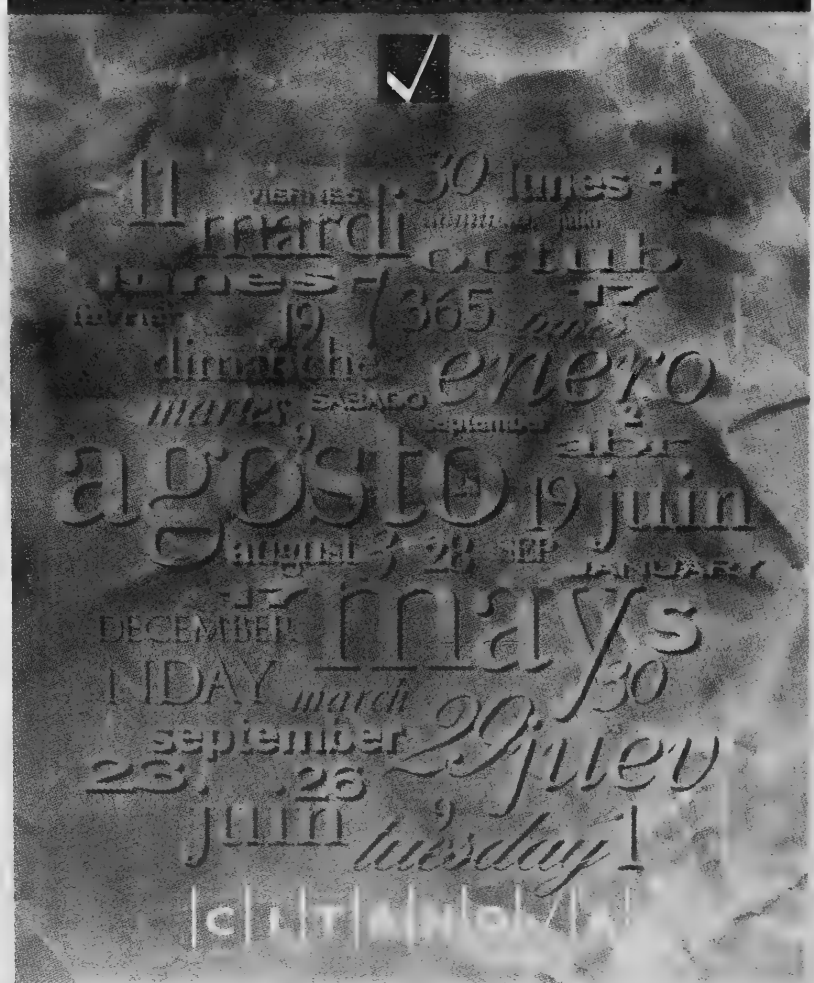 11 VIERNES 30 lunes 4
mardi julio
octub
lunes 7 365 17
février 19 lunes
dimanche enero
martes SABADO september 2
9 abr
agosto 19 juin
august 3 28 SEP JANUARY
17 mays
DECEMBER
NDAY march 30
september 29 juev
23 26
juin 9 tuesday 1
CITANOVA